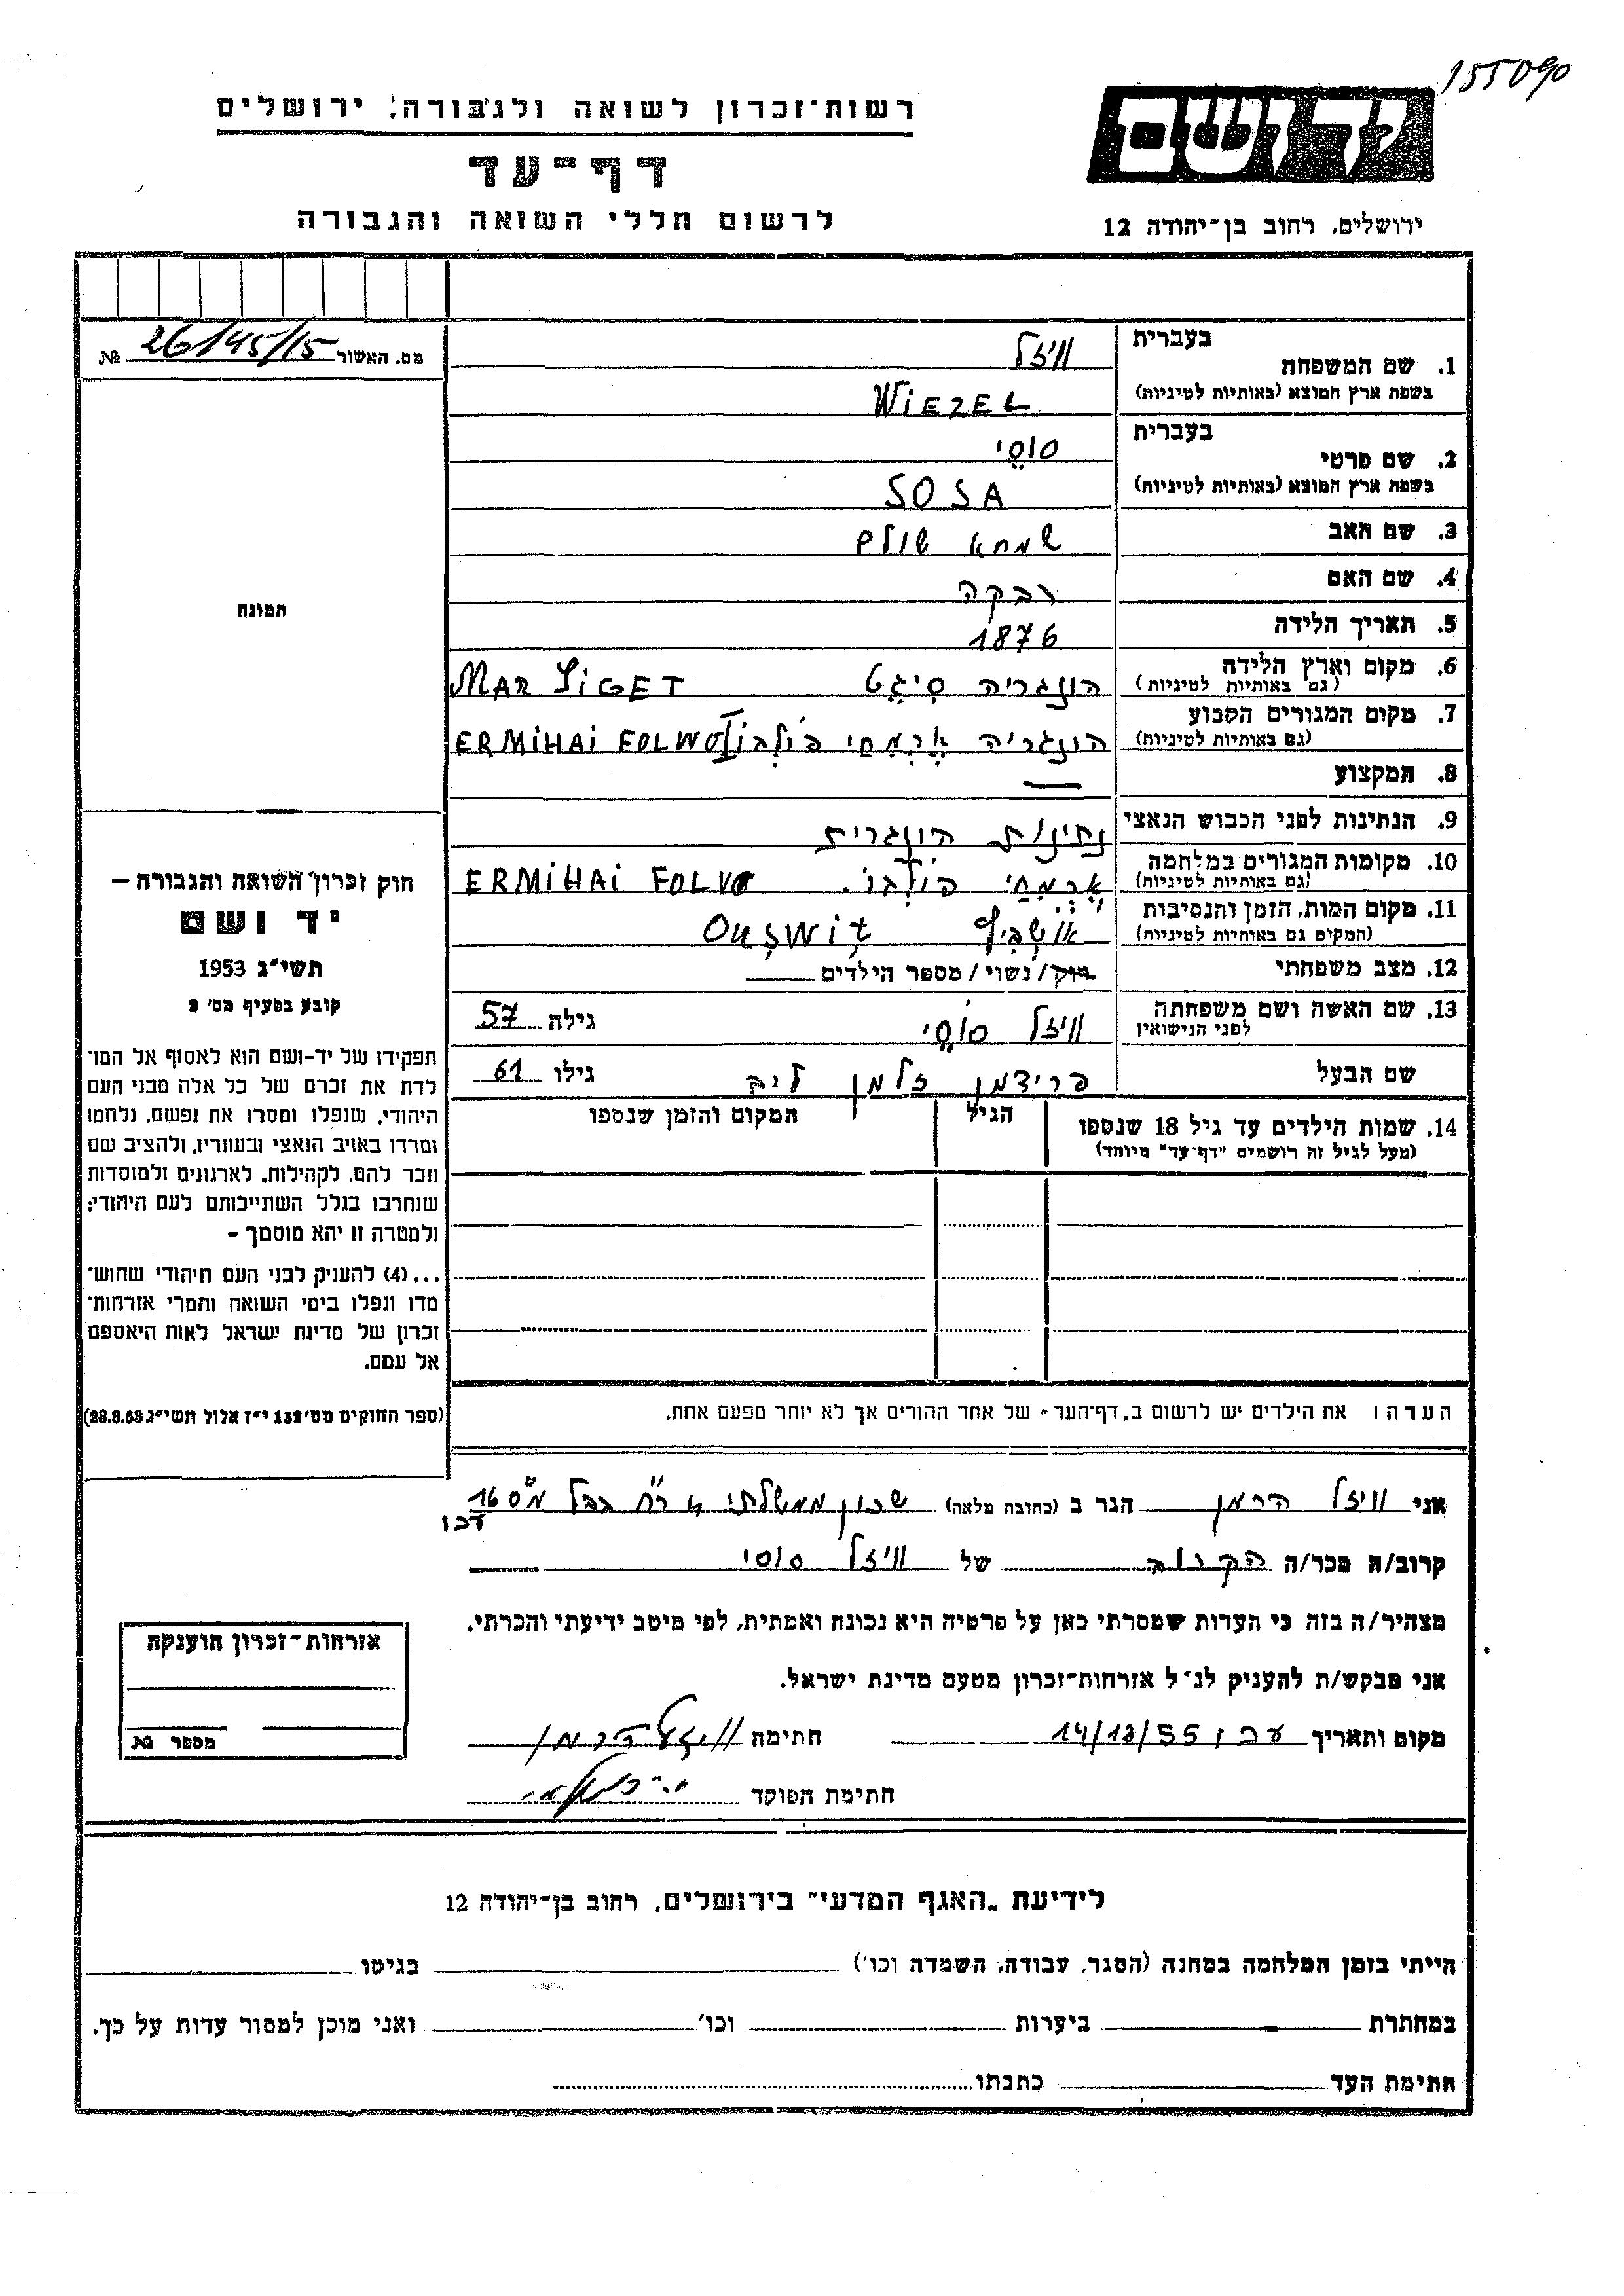 155090
ידושם
רשות-זכרון לשואה ולגבורה, ירושלים
דף-עד
ירושלים, רחוב בן-יהודה 12
לרשום חללי השואה והגבורה
מס. האשור 26/45/15 №
תמונה
בעברית
1. שם המשפחה וויזל
בשפת ארץ המוצא (באותיות לטיניות) WiEZEL
בעברית
2. שם פרטי סוסי
בשפת ארץ המוצא (באותיות לטיניות) SOSA
3. שם האב שמחא שולם
4. שם האם רבקה
5. תאריך הלידה 1876
6. מקום וארץ הלידה
(גם באותיות לטיניות) הונגריה סיגט MAR SiGET
7. מקום המגורים הקבוע
(גם באותיות לטיניות) הונגריה ERMiHAi
8. המקצוע —
9. הנתינות לפני הכבוש הנאצי נתינות הונגרית
10. מקומות המגורים במלחמה
(גם באותיות לטיניות) ERMiHAi
11. מקום המות, הזמן והנסיבות
(המקום גם באותיות לטיניות) אושביץ OuşWiţ
12. מצב משפחתי רוק/נשוי/מספר הילדים
13. שם האשה ושם משפחתה
לפני הנישואין וויזל סוסי גילה 57
שם הבעל פרידמן זלמן ליב גילו 61
14. שמות הילדים עד גיל 18 שנספו הגיל המקום והזמן שנספו
(מעל לגיל זה רושמים "דף-עד" מיוחד)
הערה: את הילדים יש לרשום ב"דף-העד" של אחד ההורים אך לא יותר מפעם אחת.
חוק זכרון השואה והגבורה –
יד ושם
תשי"ג 1953
קובע בסעיף מס' 2
תפקידו של יד-ושם הוא לאסוף אל המו-
לדת את זכרם של כל אלה מבני העם
היהודי, שנפלו ומסרו את נפשם, נלחמו
ומרדו באויב הנאצי ובעוזריו, ולהציב שם
וזכר להם, לקהילות, לארגונים ולמוסדות
שנחרבו בגלל השתייכותם לעם היהודי;
ולמטרה זו יהא מוסמך –
...(4) להעניק לבני העם היהודי שהוש-
מדו ונפלו בימי השואה והמרי אזרחות-
זכרון של מדינת ישראל לאות היאספם
אל עמם.
(ספר החוקים מס' 132 י"ז אלול תשי"ג 28.8.53)
אני וויזל הרמן הגר ב (כתובת מלאה) שכון ממשלתי
עכו
קרוב/ה מכר/ה הקרוב של וויזל סוסי
מצהיר/ה בזה כי העדות שמסרתי כאן על פרטיה היא נכונה ואמתית, לפי מיטב ידיעתי והכרתי.
אני מבקש/ת להעניק לנ"ל אזרחות-זכרון מטעם מדינת ישראל.
מקום ותאריך עכו 14/12/55 חתימה וויזל הרמן
חתימת הפוקד
אזרחות-זכרון הוענקה
מספר №
לידיעת "האגף המדעי" בירושלים, רחוב בן-יהודה 12
הייתי בזמן המלחמה במחנה (הסגר, עבודה, השמדה וכו') בגיטו
במחתרת ביערות וכו' ואני מוכן למסור עדות על כך.
חתימת העד כתבתו